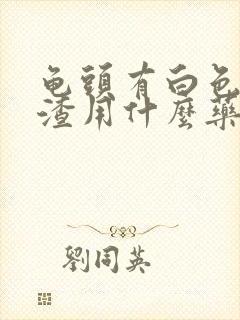 龟頭有白色
渣用什麼藥
劉同英